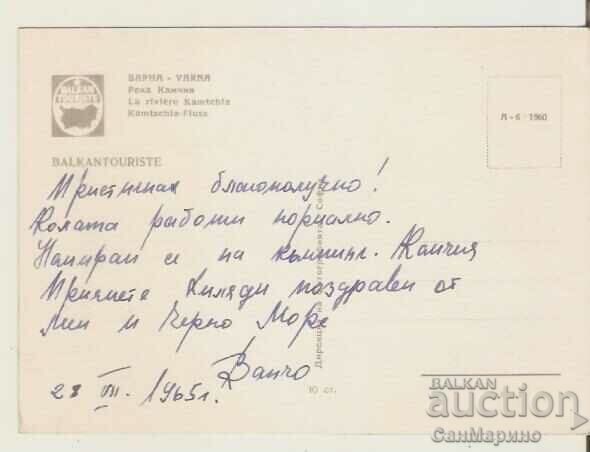 BALKAN
TOURISTE
ВАРНА - VARNA
Река Камчия
La rivière Kamtchia
Kamtschia-Fluss
BALKANTOURISTE
А-6 · 1960
Пристигнах благополучно!
Колата работи нормално.
Намирам се на къмпинг. Камчия
Приемете хиляди поздрави от
мен и Черно Море
Ванчо
28 VII. 1965 г.
10 ст.
BALKAN
auction
СанМарино